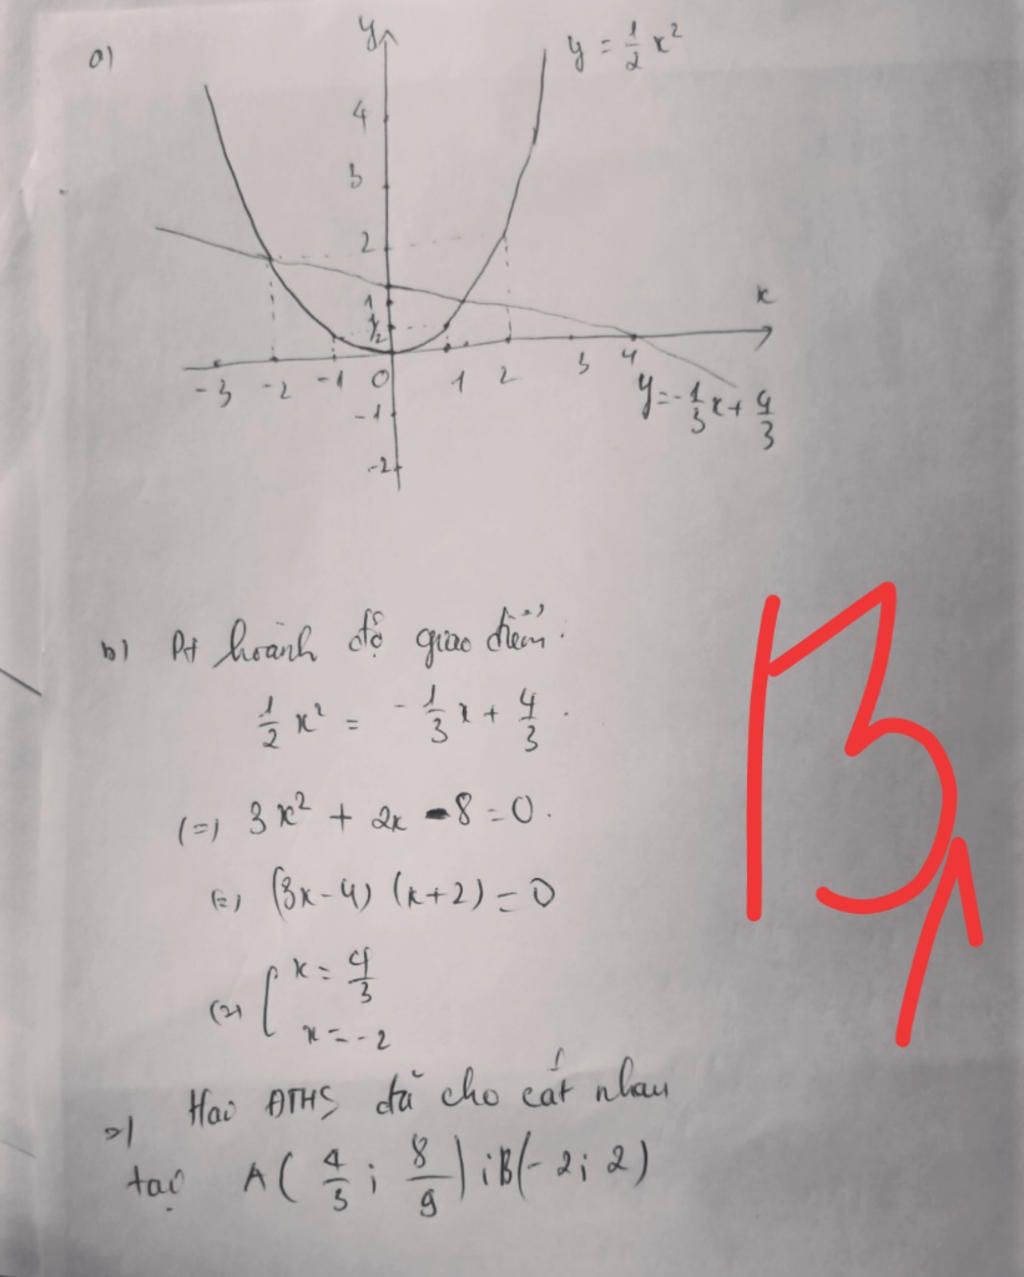 a)
y
y = 1/2 x²
4
3
2
1
1/2
x
-3 -2 -1 0 1 2 3 4
-1
-2
y = -1/3 x + 4/3
b) Pt hoành độ giao điểm:
1/2 x² = -1/3 x + 4/3.
(=) 3x² + 2x - 8 = 0.
(=) (3x - 4) (x + 2) = 0
(=) [ x = 4/3
x = -2
=) Hai ĐTHS đã cho cắt nhau
tại A( 4/3 ; 8/9 ) ; B(-2; 2)